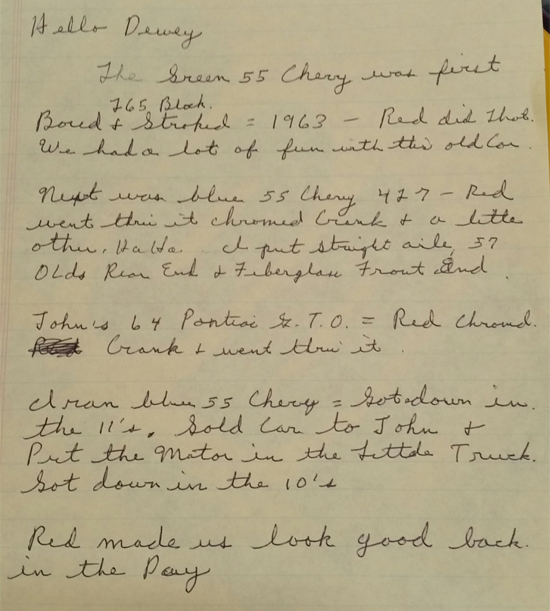 Hello Dewey
The Green 55 Chevy was first
265 Block.
Bored & Stroked = 1963 - Red did that.
We had a lot of fun with this old Car.
Next was blue 55 Chevy 427 - Red
went thru it chromed Crank & a little
other, Ha Ha. I put straight axle, 57
Olds Rear End & Fiberglass Front End.
John's 64 Pontiac G.T.O. = Red Chromd.
Crank & went thru it.
I ran blue 55 Chevy = Got down in.
the 11's. Sold Car to John &
Put the Motor in the Little Truck.
Got down in the 10's
Red made us look good back.
in the Day